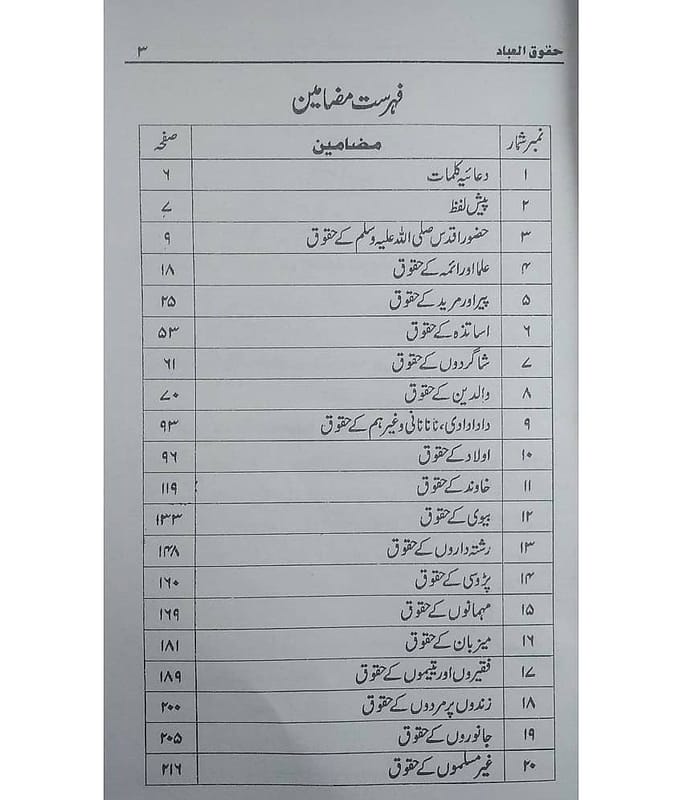 حقوق العباد ۳
فہرست مضامین
نمبر شمار مضامین صفحہ
۱ دعائیہ کلمات ۶
۲ پیش لفظ ۷
۳ حضور اقدس صلی اللہ علیہ وسلم کے حقوق ۹
۴ علما اور ائمہ کے حقوق ۱۸
۵ پیر اور مرید کے حقوق ۲۵
۶ اساتذہ کے حقوق ۵۳
۷ شاگردوں کے حقوق ۶۱
۸ والدین کے حقوق ۷۰
۹ دادا دادی، نانا نانی وغیرہم کے حقوق ۹۳
۱۰ اولاد کے حقوق ۹۶
۱۱ خاوند کے حقوق ۱۱۹
۱۲ بیوی کے حقوق ۱۳۳
۱۳ رشتہ داروں کے حقوق ۱۴۸
۱۴ پڑوسی کے حقوق ۱۶۰
۱۵ مہمانوں کے حقوق ۱۶۹
۱۶ میزبان کے حقوق ۱۸۱
۱۷ فقیروں اور یتیموں کے حقوق ۱۸۹
۱۸ زندوں پر مردوں کے حقوق ۲۰۰
۱۹ جانوروں کے حقوق ۲۰۵
۲۰ غیر مسلموں کے حقوق ۲۱۶